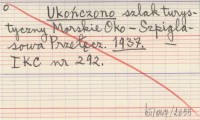 Ukończono szlak turys-
tyczny Morskie Oko - Szpigla-
sowa Przełęcz. 1937.
IKC nr 292.